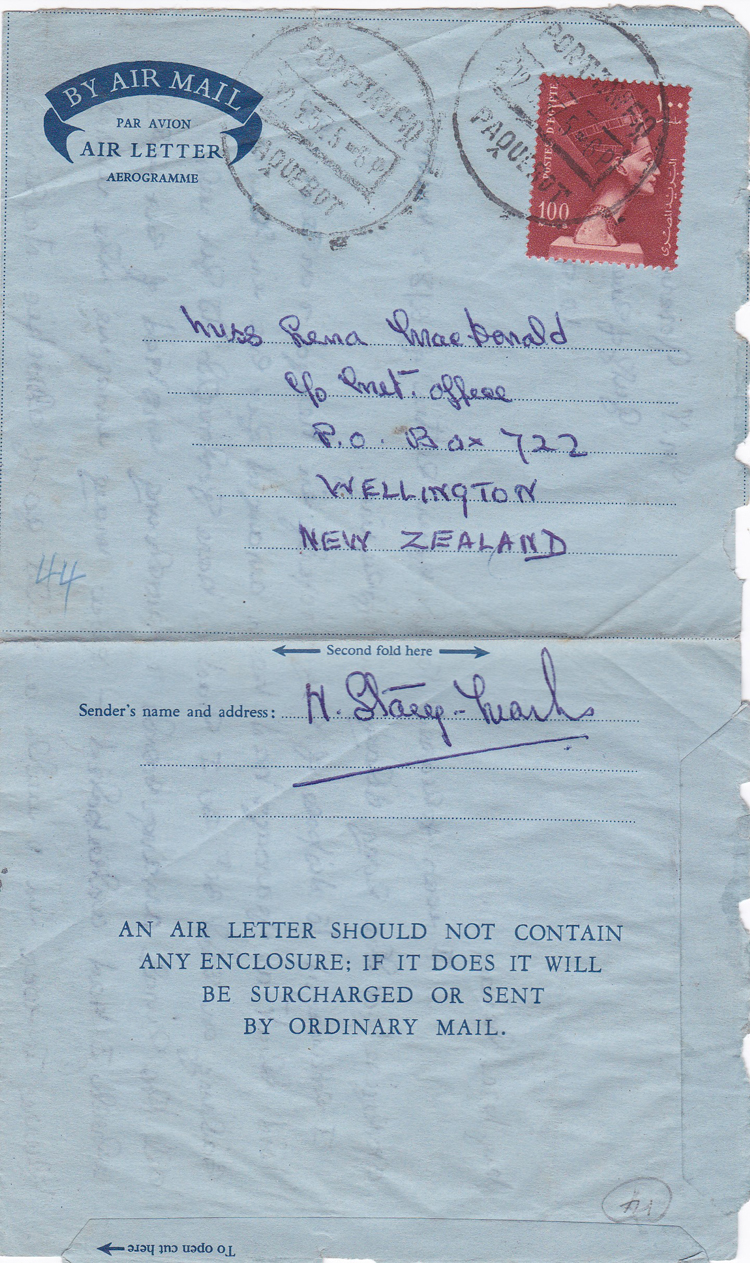 BY AIR MAIL
PAR AVION
AIR LETTER
AEROGRAMME
PORT TAUFIQ
5 57.5
PAQUEBOT
PORT TAUFIQ
PAQUEBOT
POSTES D'EGYPTE
١٠٠
100
البريد المصرى
Miss Lena MacDonald
c/o Met. Office
P.O. Box 722
WELLINGTON
NEW ZEALAND
44
Second fold here
Sender's name and address: H. Stacey-Marks
AN AIR LETTER SHOULD NOT CONTAIN
ANY ENCLOSURE; IF IT DOES IT WILL
BE SURCHARGED OR SENT
BY ORDINARY MAIL.
To open cut here